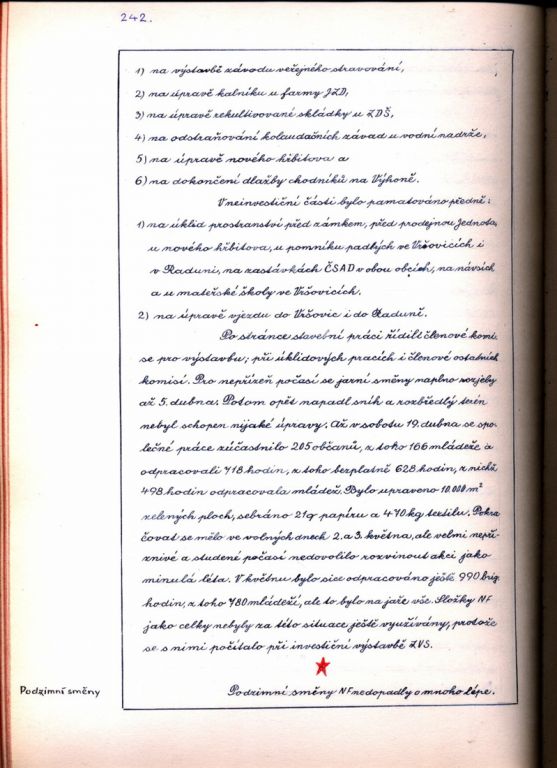 242.
1) na výstavbě závodu veřejného stravování,
2) na úpravě kalníku u farmy JZD,
3) na úpravě rekultivované skládky u ZDŠ,
4) na odstraňování kolaudačních závad u vodní nádrže,
5) na úpravě nového hřbitova a
6) na dokončení dlažby chodníků na Výhoně.
V neinvestiční části bylo pamatováno předně:
1) na úklid prostranství před zámkem, před prodejnou Jednota,
u nového hřbitova, u pomníku padlých ve Vršovicích i
v Raduni, na zastávkách ČSAD v obou obcích, na návsích
a u mateřské školy ve Vršovicích.
2) na úpravě vjezdu do Vršovic i do Raduně.
Po stránce stavební práci řídili členové komi-
se pro výstavbu; při úklidových pracích i členové ostatních
komisí. Pro nepřízeň počasí se jarní směny naplno rozjely
až 5. dubna. Potom opět napadl sníh a rozbředlý terén
nebyl schopen nijaké úpravy. Až v sobotu 19. dubna se spo-
lečné práce zúčastnilo 205 občanů, z toho 166 mládeže a
odpracovali 718 hodin, z toho bezplatně 628 hodin, z nichž
498 hodin odpracovala mládež. Bylo upraveno 10.000 m²
zelených ploch, sebráno 21q papíru a 470 kg textilu. Pokra-
čovat se mělo ve volných dnech 2. a 3. května, ale velmi nepří-
znivé a studené počasí nedovolilo rozvinout akci jako
minulá léta. V květnu bylo sice odpracováno ještě 990 brig.
hodin, z toho 780 mládeží, ale to bylo na jaře vše. Složky NF
jako celky nebyly za této situace ještě využívány, protože
se s nimi počítalo při investiční výstavbě ZVS.
Podzimní směny
Podzimní směny NF nedopadly o mnoho lépe.